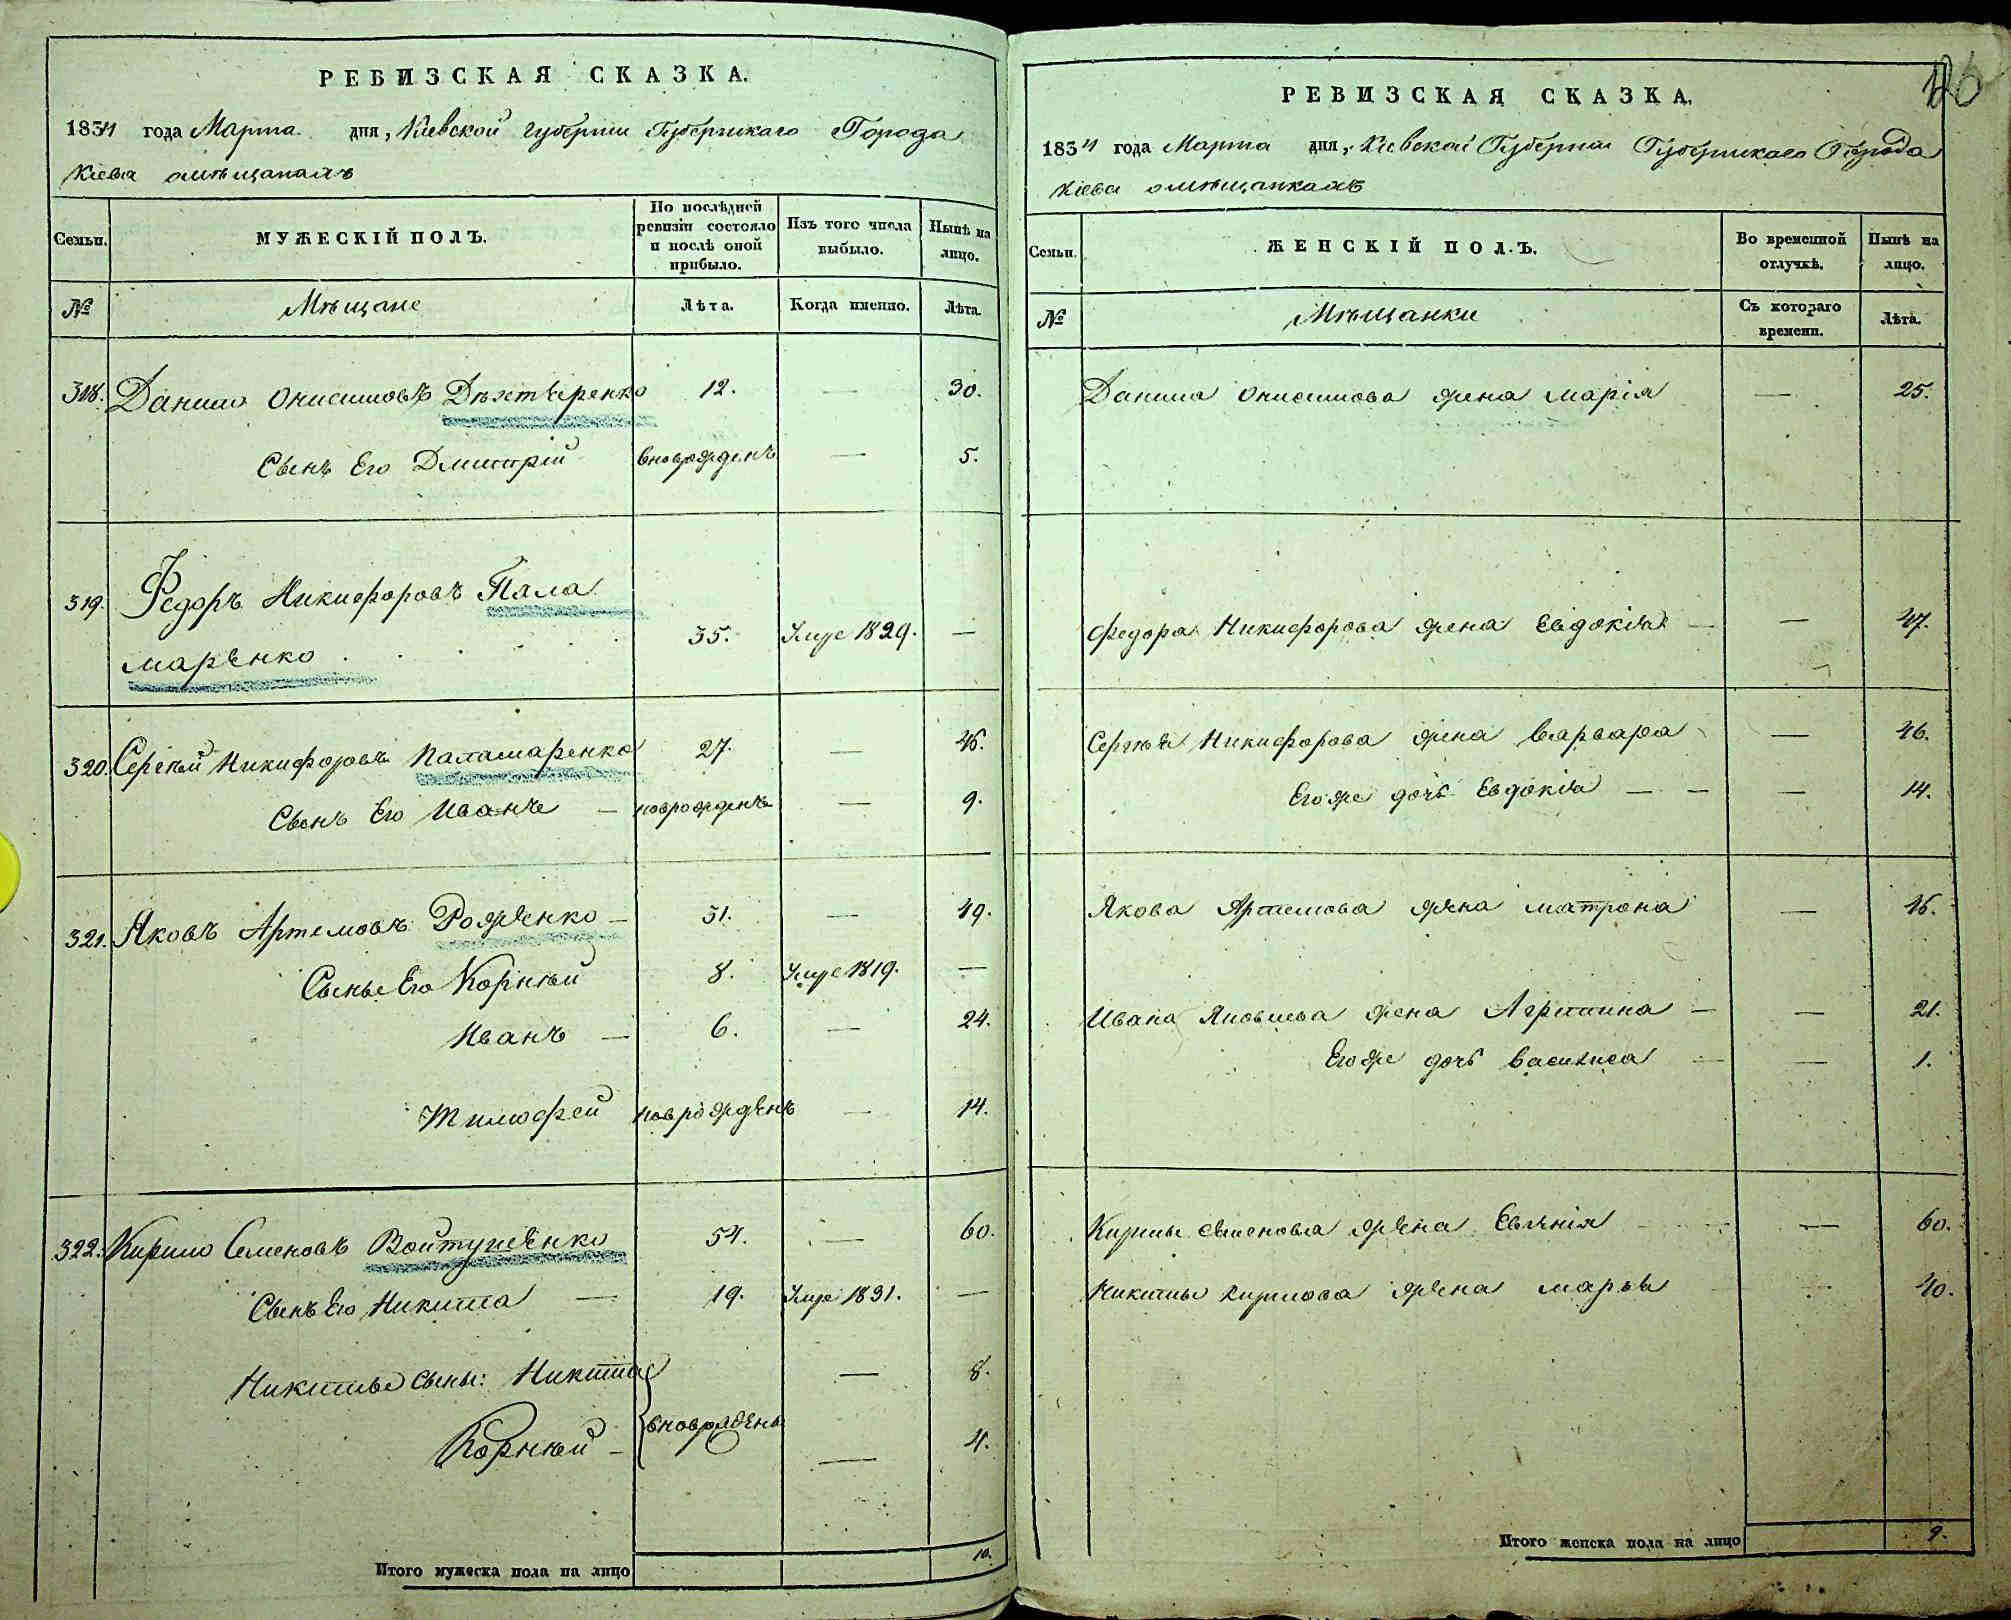 РЕВИЗСКАЯ СКАЗКА.
1834 года Марта дня, Кіевской губерніи Губернскаго Города
Кіева омѣщанахъ
Семьи.
МУЖЕСКІЙ ПОЛЪ.
По послѣдней ревизіи состояло и послѣ оной прибыло.
Изъ того числа выбыло.
Нынѣ на лицо.
№
Мѣщане
Лѣта.
Когда именно.
Лѣта.
318. Данило Онисимовъ Дѣхтяренко 12. — 30.
Сынъ Его Дмитрій вноврожденъ — 5.
319. Федоръ Никифоровъ Пала
маренко 35. Умре 1829. —
320. Сергѣй Никифоровъ Паламаренко 27. — 46.
Сынъ Его Иванъ — новрожденъ — 9.
321. Яковъ Артемовъ Роженко — 31. — 49.
Сынъе Его Корнѣй 8. Умре 1819. —
Иванъ — 6. — 24.
Тимофей новрожденъ — 14.
322. Кирило Семеновъ Войтушенко 54. — 60.
Сынъ Его Никита — 19. Умре 1831. —
Никиты сыны: Никита — 8.
вноврождены
Корнѣй — — 4.
Итого мужеска пола на лицо 10.
126
РЕВИЗСКАЯ СКАЗКА.
1834 года Марта дня, Кіевской Губерніи Губернскаго Города
Кіева омѣщанкахъ
Семьи.
ЖЕНСКІЙ ПОЛЪ.
Во временной отлучкѣ.
Нынѣ на лицо.
№
Мѣщанки
Съ котораго времени.
Лѣта.
Данила Онисимова жена Марія — 25.
Федора Никифорова жена Евдокія — — 47.
Сергѣя Никифорова жена Варвара — 46.
Егоже дочь Евдокія — — — 14.
Якова Артемова жена матрона — 46.
Ивана Яковлева жена Агрипина — — 21.
Егоже дочь Василиса — — 1.
Кирилы Семенова жена Евгенія — 60.
Никиты Кирилова жена марья — 40.
Итого женска пола на лицо 9.